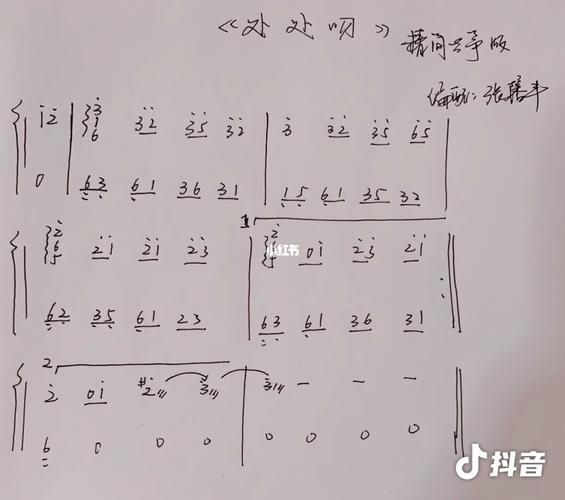 《处处吻》 精简古筝版
编配：张膳丰
1̇2̇ | 3̇16 3̇2̇ 3̇5̇ 3̇2̇ | 3̇ 3̇2̇ 3̇5̇ 6̇5̇ |
0 | 63 61 36 31 | 15 61 35 32 |
1
2̇65 2̇1̇ 2̇1̇ 2̇3̇ | 2̇65 01̇ 2̇3̇ 2̇1̇ :||
62 35 61 23 | 63 61 36 31
小红书
2
2̇ 01̇ #2̇ 3̇ | 3̇ – – – ||
6 0 0 0 | 0 0 0 0
抖音